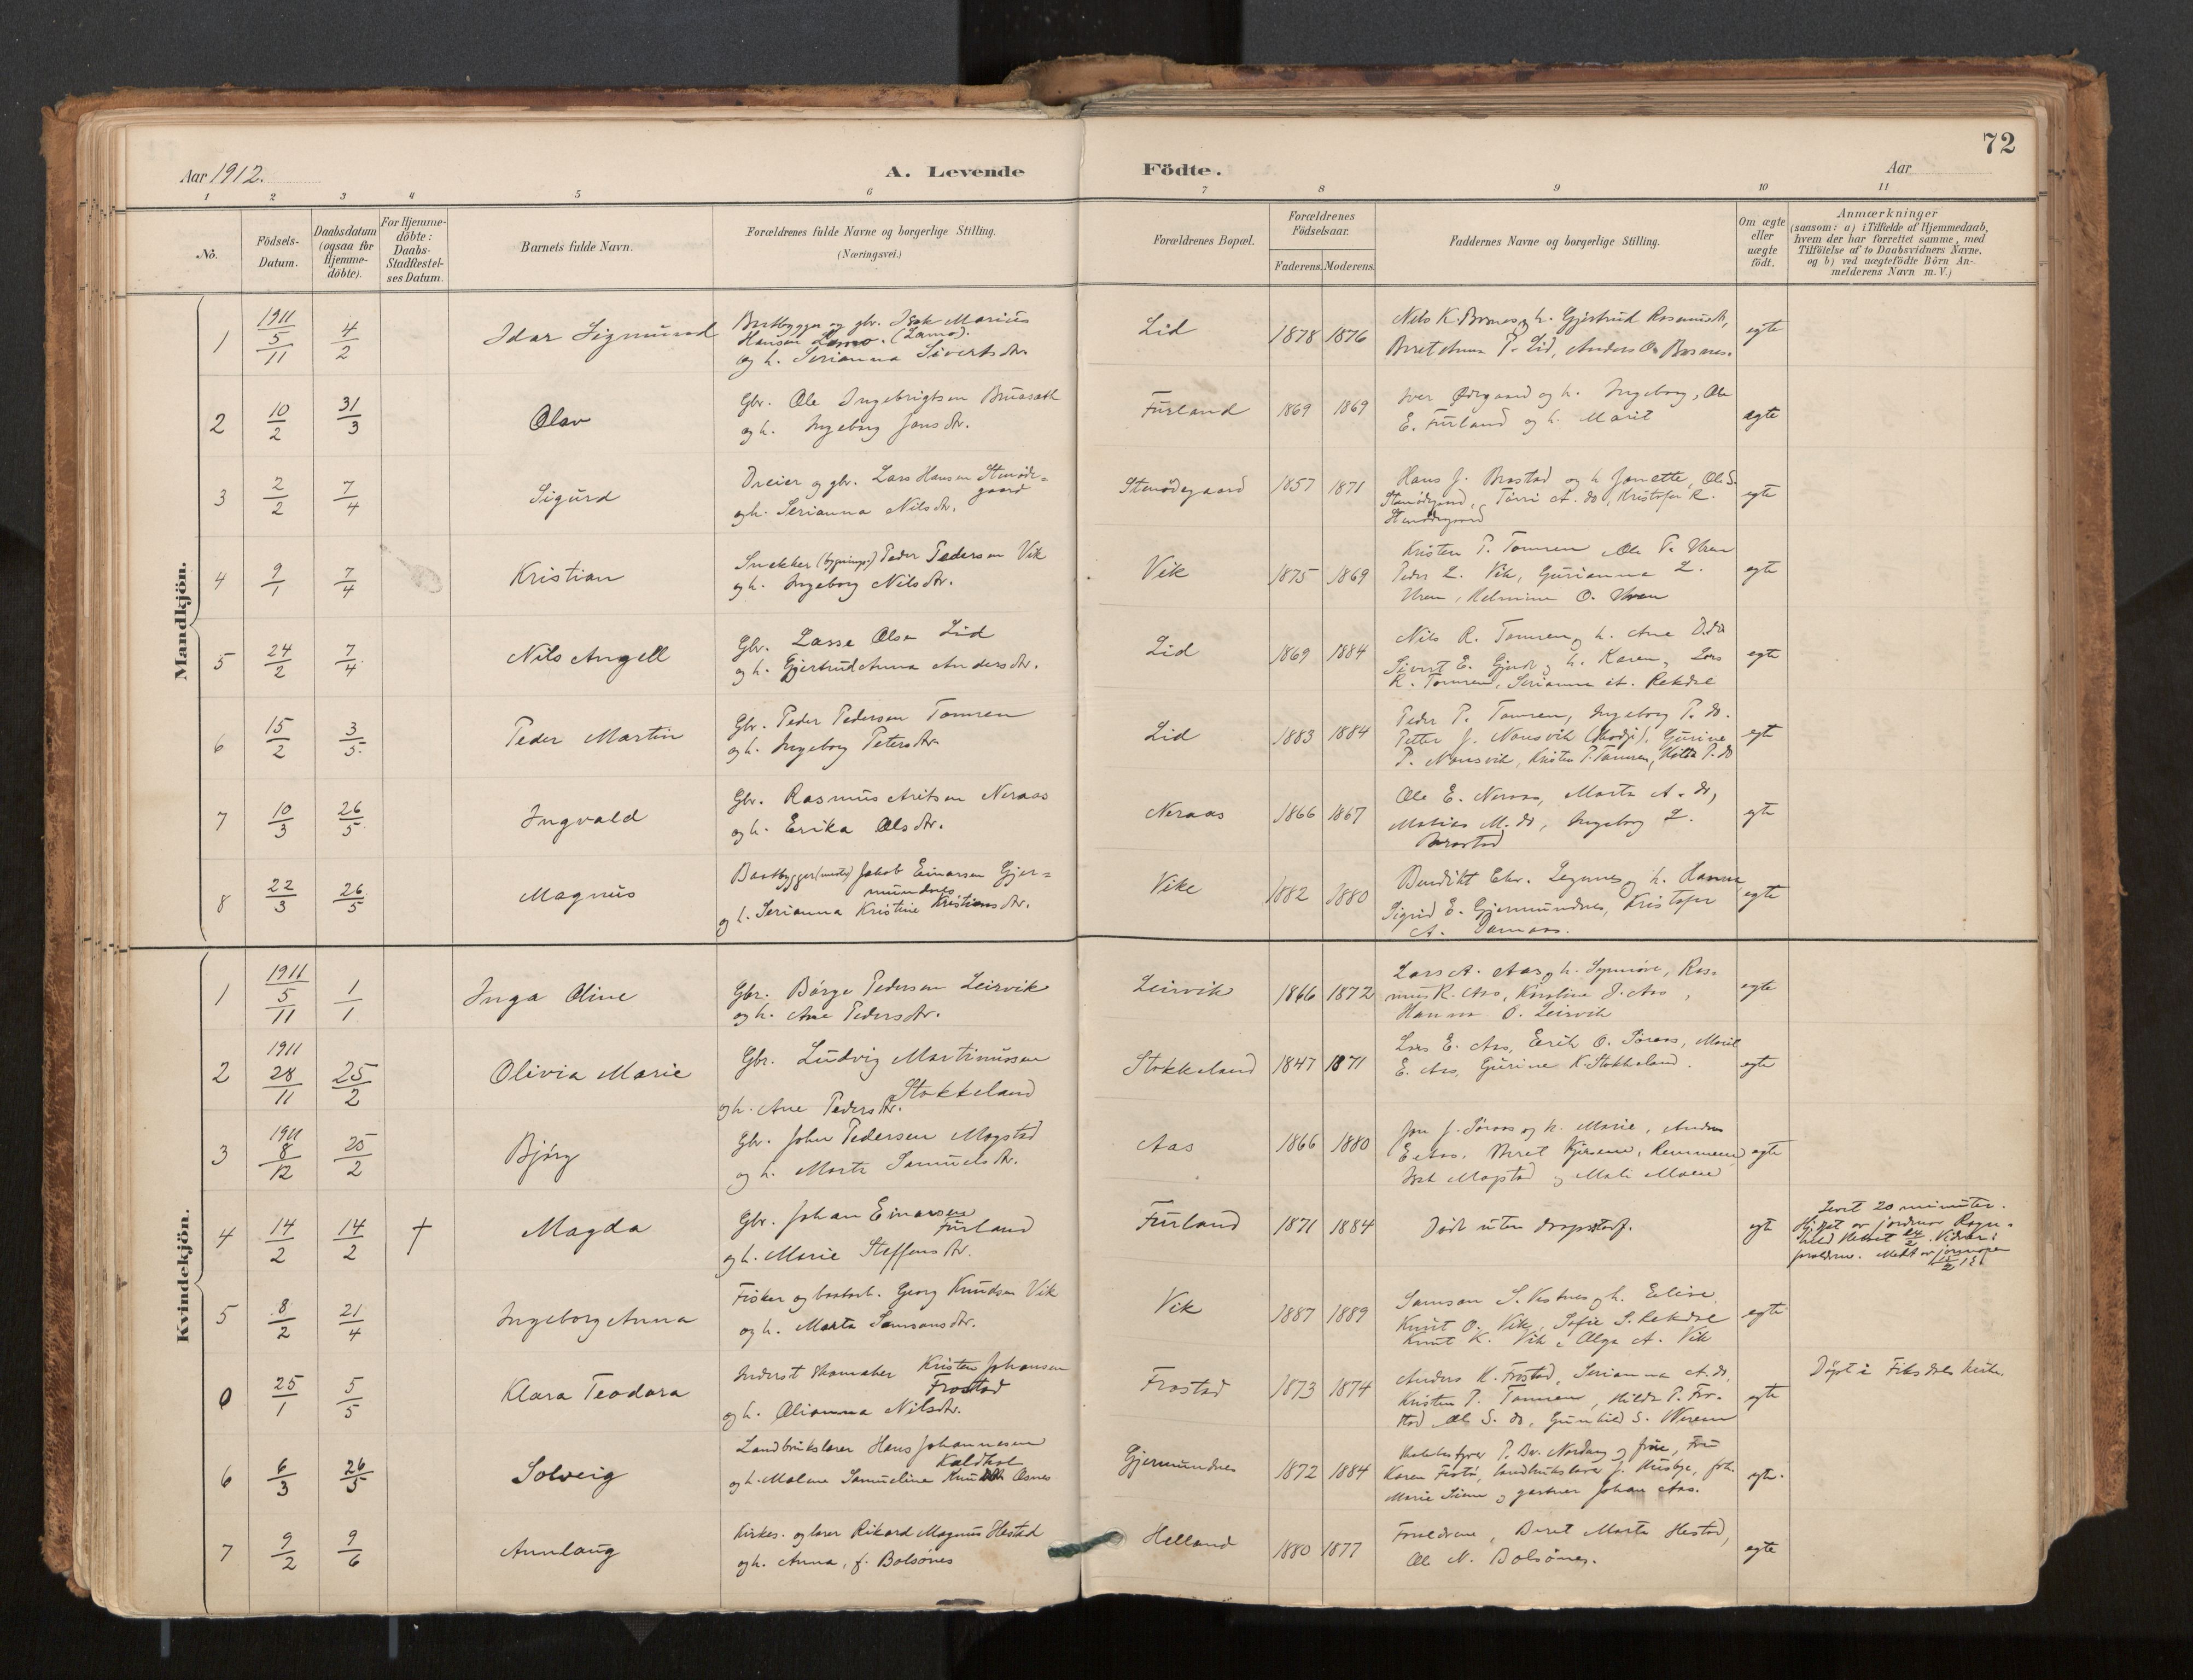 72
Aar 1912.
A. Levende Födte.
Aar
1 2 3 4 5 6 7 8 9 10 11
No.
Födsels-Datum.
Daabsdatum (ogsaa for Hjemme-döbte).
For Hjemme-döbte: Daabs-Stadfæstel-ses Datum.
Barnets fulde Navn.
Forældrenes fulde Navne og borgerlige Stilling.
(Næringsvei.)
Forældrenes Bopæl.
Forældrenes Födselsaar.
Faderens. Moderens.
Faddernes Navne og borgerlige Stilling.
Om ægte eller uægte födt.
Anmærkninger
(saasom: a) i Tilfælde af Hjemmedaab, hvem der har forrettet samme, med Tilföielse af to Daabsvidners Navne, og b) ved uægtefödte Börn An-melderens Navn m.V.)
Mandkjön.
1 1911 5/11 4/2 Idar Sigmund
Baatbygger og gbr. Isak Marius
Hansen Lamo. (Lamo).
og h. Serianna Siverts dtr.
Lid 1878 1876
Nils K. Brsnes og h. Gjertrud Rasmusdt,
Beret Anna P. Lid, Anders O. egte
2 10/2 31/3 Olav
Gbr. Ole Ingebrigtsen Bruaseth
og h. Ingeborg Jons dtr.
Furland 1869 1869
Iver Ødegaard og h. Ingeborg, Ole
E. Furland og h. Marit egte
3 2/2 7/4 Sigurd
Dreier og gbr. Lars Hansen Stenøde=
gaard
og h. Serianna Nils dtr.
Stenødegaard 1857 1871
Hans J. Brastad og h Janette, Ole S.
Stenødegaard, A. do, Kristofer R.
Stenødegaard egte
4 9/1 7/4 Kristian
Snekker (bygnings) Peder Pedersen Vik
og h. Ingeborg Nils dtr.
Vik 1875 1869
Kristen P. Tomren Ole P. Uren
Peder L. Vik, Gurianna L.
Uren, Helmine O. Uren egte
5 24/2 7/4 Nils Angell
Gbr. Lasse Olsen Lid
og h. Gjertrud Anna Anders dtr.
Lid 1869 1884
Nils R. Tomren og h. Ane D.do
Sivert E. Gjerde og h. Karen, Lars
R. Tomren, Serianna A. Rekdal egte
6 15/2 3/5 Peder Martin
Gbr. Peder Pedersen Tomren
og h. Ingeborg Peters dtr
Lid 1883 1884
Peder P. Tomren, Ingeborg P. do.
Petter J. Nonsvik (Skodje), Gurine
P. Nonsvik, Kristen P. Tomren, Hilda P. do egte
7 10/3 26/5 Ingvald
Gbr. Rasmus Aritsen Neraas
og h. Erika Ols dtr.
Neraas 1866 1867
Ole E. Neraas, Marta A. do,
Matias M. do, Ingeborg L.
Brastad egte
8 22/3 26/5 Magnus
Baatbygger (mester) Jakob Einarsen Gjer=
mundnes
og h. Serianna Kristine Kristians dtr.
Vike 1882 1880
Bendikt Chr. og h. Hanna
Sigrid E. Gjermundnes, Kristofer
A. egte
Kvindekjön.
1 1911 5/11 1/1 Inga Oline
Gbr. Børge Pedersen Leirvik
og h. Ane Peders dtr.
Leirvik 1866 1872
Lars A. Aas og h. Synnøve, Ras-
mus R. Aas, Karoline J. Aas,
Hanna O. Leirvik egte
2 1911 28/11 25/2 Olivia Marie
Gbr. Ludvig Martinussen
Stokkeland
og h. Ane Peders dtr.
Stokkeland 1847 1871
Lars E. Aas, Erik O. Søraas, Marit
E. Aas, Gurine K. Stokkeland. egte
3 1911 8/12 25/2 Bjørg
Gbr. John Pedersen Magstad
og h. Marte Samuels dtr.
Aas 1866 1880
Jon J. Søraas og h. Marie, Anders
E. Aas, Beret Remmem
Magstad og Moen egte
4 14/2 14/2 † Magda
Gbr. Johan Einarsen
Furland
og h. Marie Steffens dtr.
Furland 1871 1884
Død uten egt
Levet 20 minuter.
av jordmor Ragn-
hild
5 8/2 21/4 Ingeborg Anna
Fisker og baatarb. Georg Knudsen Vik
og h. Marta Samsons dtr.
Vik 1887 1889
Samson S. Vestnes og h. Eline
Knut O. Vik, Sofie S. Rekdal
Knut K. Vik, Olga A. Vik egte
0 25/1 5/5 Klara Teodora
Inderst Skomaker Kristen Johansen
Frostad
og h. Olianna Nilsdtr.
Frostad 1873 1874
Anders K. Frostad, Serianna A. do,
Kristen P. Tomren, Hilda P. Fro-
stad Ole S. do, Gunhild S. egte
Døpt i Fiksdals kirke.
6 6/3 26/5 Solveig
Landbrukslærer Hans Johannesen
Kaldhol
og h. Malene Samueline Knuds dtr Øsnes
Gjermundnes 1872 1884
P. Nordang og frue, Fru
Karen landbrukslærer J. Husbye, frk.
Marie og gartner Johan Aas. egte.
7 9/2 9/6 Annlaug
Kirkes. og lærer Rikard Magnus Hestad
og h. Anna, f. Bolsønes
Helland 1880 1877
Forældrene, Beret Marta Hestad,
Ole N. Bolsønes. egte